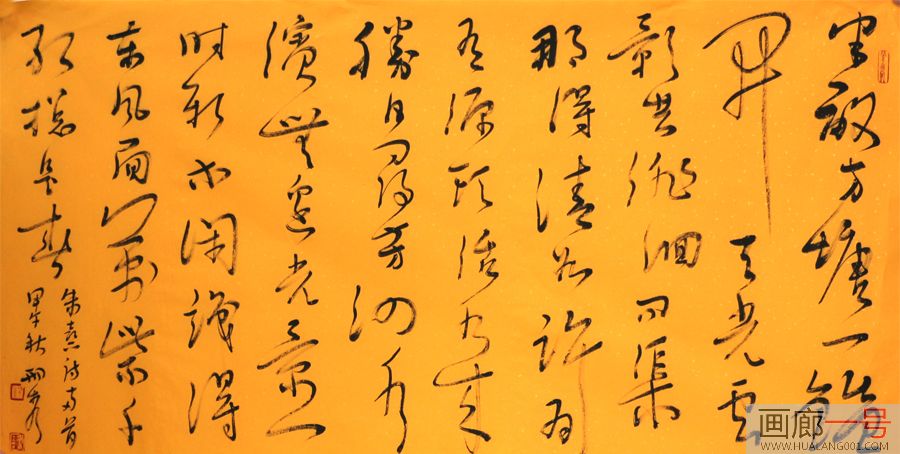 半畝方塘一鑑
開天光雲
影共徘徊問渠
那得清如許為
有源頭活水來
勝日尋芳泗水
濱無邊光景一
時新等閑識得
東風面萬紫千
紅總是春
朱熹詩兩首
甲午秋
画廊一号
WWW.HUALANG001.COM